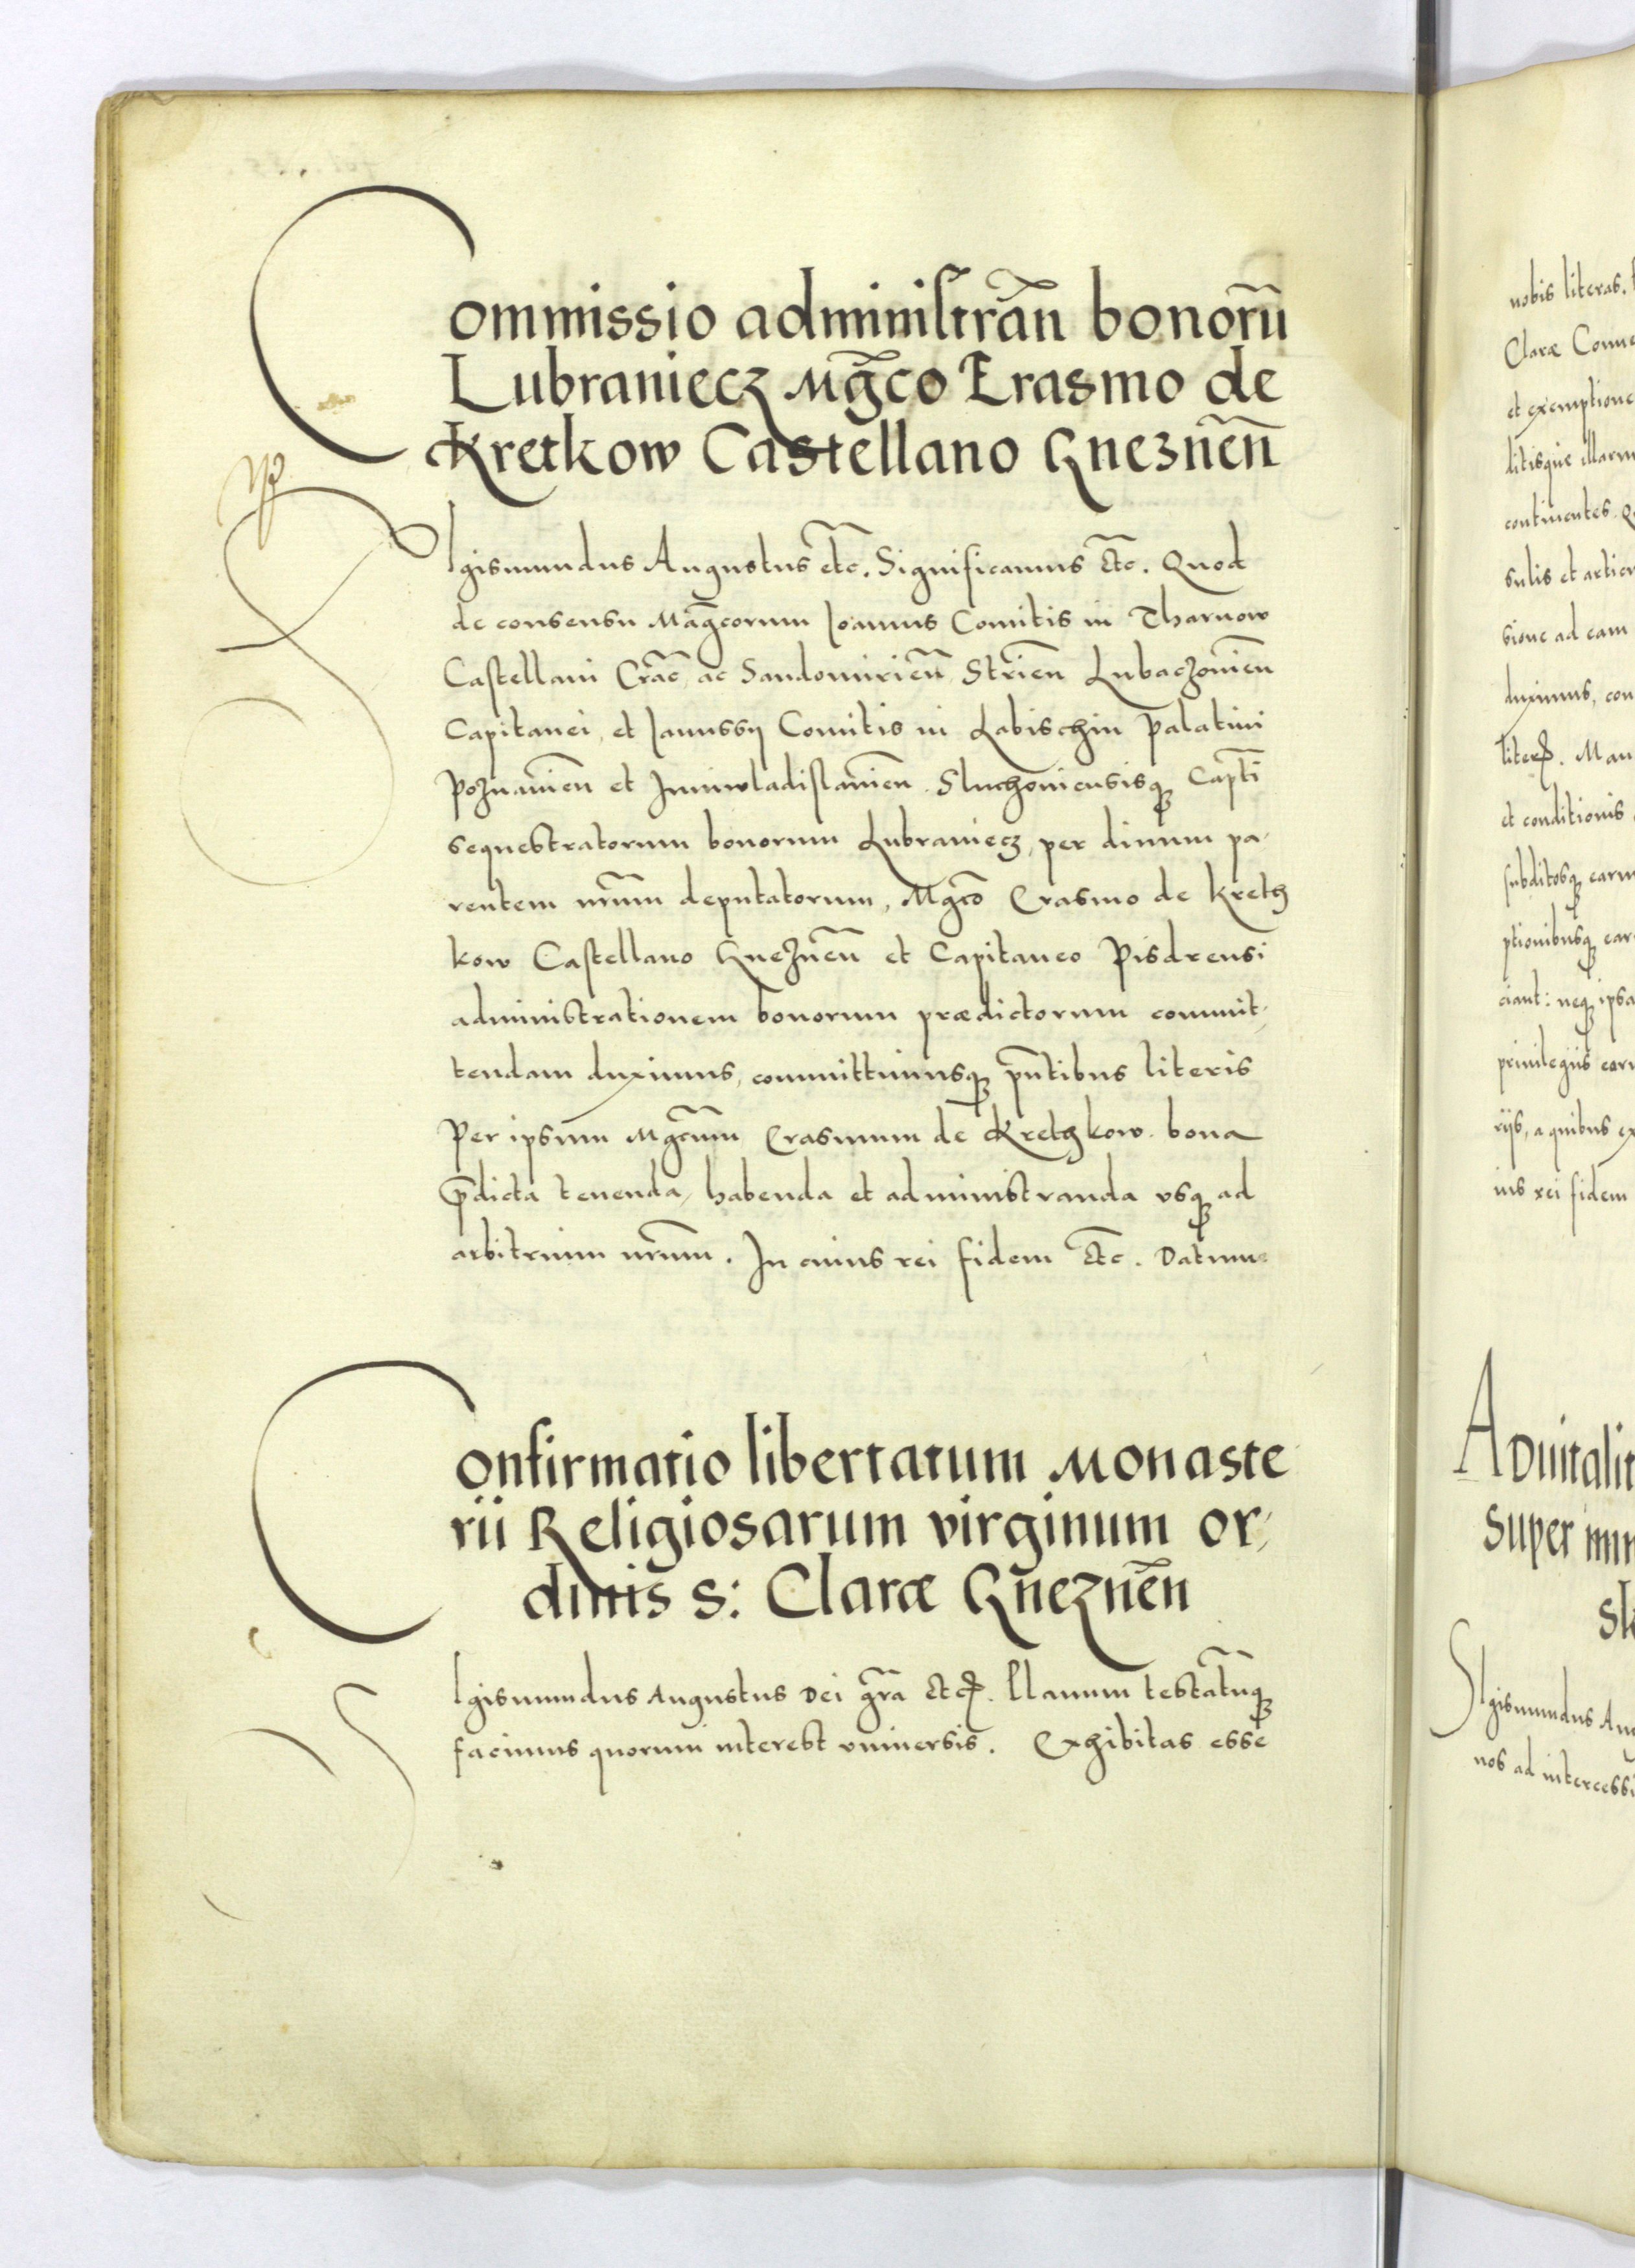 Commissio administrañ bonorũ
Lubraniecz Mg̃co Erasmo de
Kretkow Castellano Gneznẽn
Sigismundus Augustus etc̃. Significamus etc̃. Quod
de consensu Mag̃corum Joannis Comitis in Tharnow
Castellani Crac̃, ac Sandomiriẽn Striẽn Lubaczoviẽn
Capitanei, et Janussij Comitis in Labischin Palatini
Poznaniẽn et Juniwladislaviẽn. Sluchoviensisq; Capt̃i
sequestratorum bonorum Lubraniecz, per divum pa-
rentem nr̃um deputatorum, Mg̃co Erasmo de Kretz
kow Castellano Gneznẽn et Capitaneo Pisdrensi
administrationem bonorum prædictorum commit-
tendam duximus, committimusq; pñtibus literis
Per ipsum Mg̃cum Erasmum de Kretzkow bona
p̃dicta tenenda, habenda et administranda usq; ad
arbitrium nr̃um. In cuius rei fidem etc̃. Datum.
Confirmatio libertatum Monaste
rii Religiosarum virginum or-
dinis S: Claræ Gñeznẽn
Sigismundus Augustus Dei gr̃a etc. Planum testatũq;
facimus quorum interest universis. Exhibitas esse
nobis literas.
Claræ Conve
et exemptione
litisque illarum
continentes. Q
sulis et articu
sione ad eam
duximus, con
liter. Man
et conditionis
subditosq; earum
ptionibusq; ear
ciant: neq; ipsa
privilegiis earu
rijs, a quibus ex
ius rei fidem
Advitalit
super
Sigismundus Au
nos ad intercessi